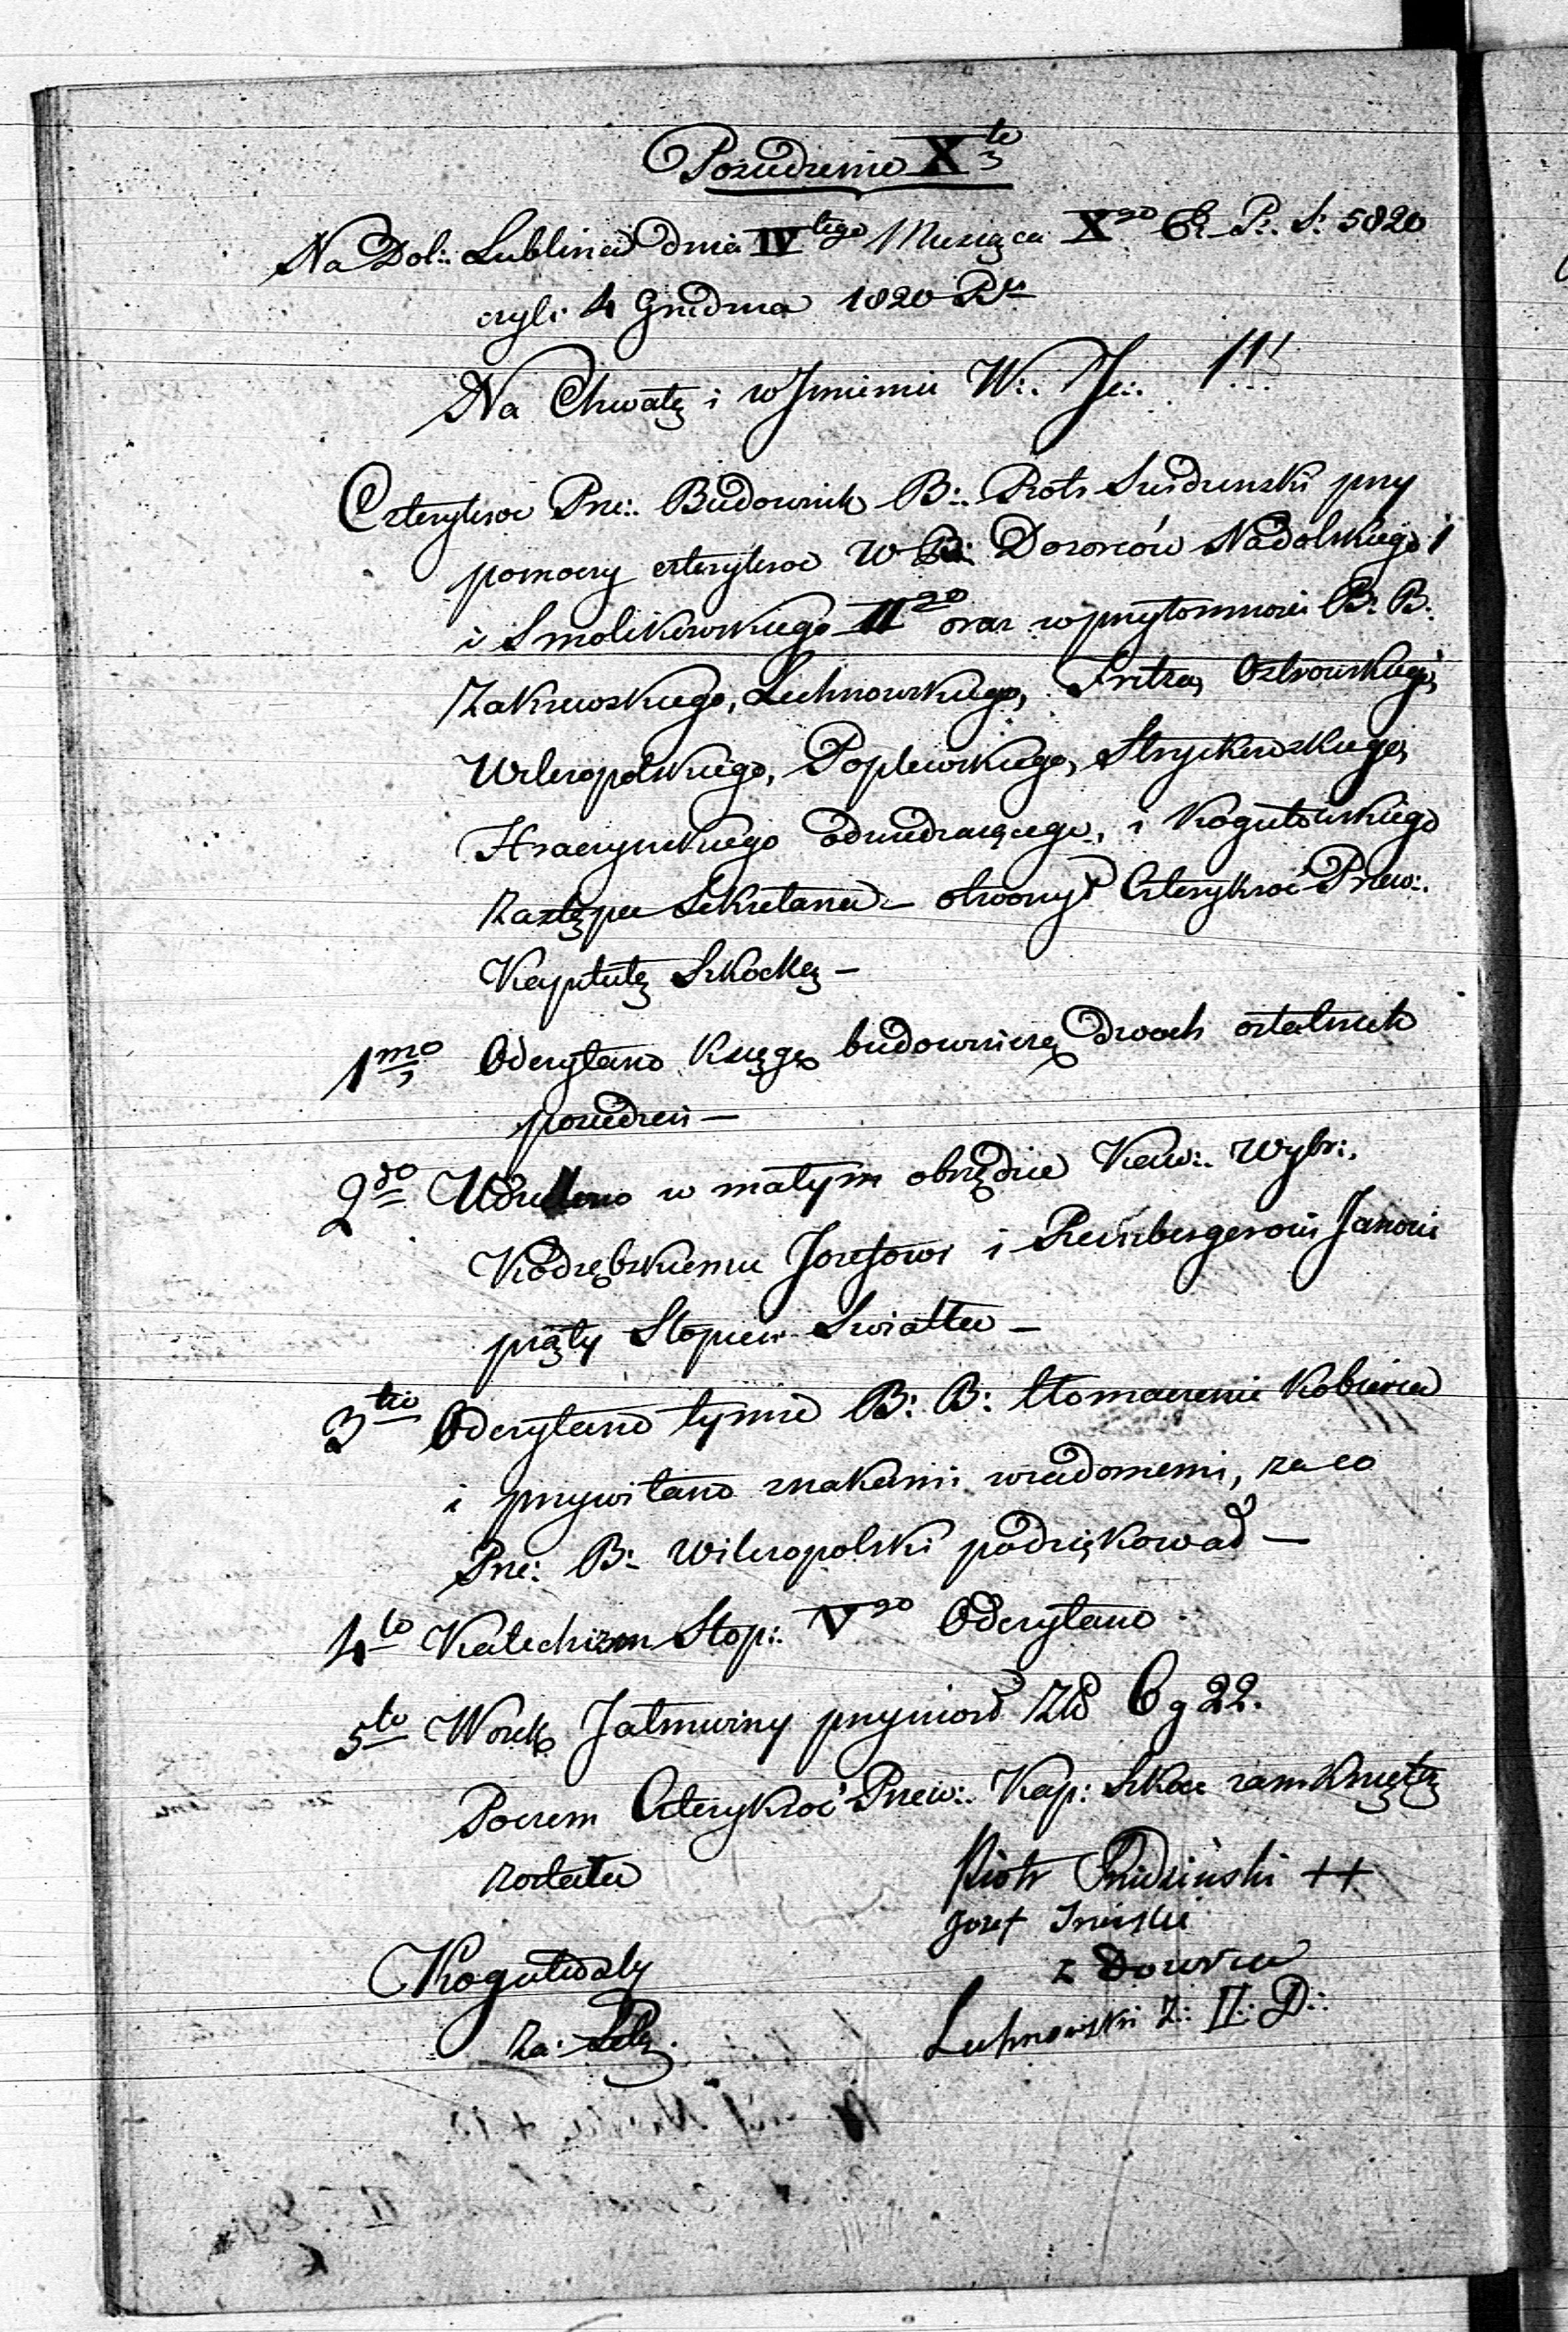 Posiedzenie X te
Na Dol:. Lublina dnia IV tego Miesiąca X go E: P:. S: 5820
czyli 4 Grudnia 1820 Ru
Na Chwałę i w Jmieniu W:. Je:. !!!
Czterykroc Prze:. Budownik B:. Piotr Sredzinski przy
pomocy czterykroc W B: Dozorców Nadolskiego 1
i Smolikowskiego II go oraz w przytomnosci B: B:
Zakrzewskiego, Luchnowskiego, Fritza, Ostrowskiego,
Wilczopolskiego, Poplewskiego, Stryikowskiego,
odwiedzaiącego, i Kogutowskiego
Zastępcu Sekretarza – otworzył Czterykroć Przew:.
Kapitułę Szkocką –
1mo Odczytano Księgę budowniczą dwóch ostatnich
posiedzeń –
2do Udzielono w małym obrzędzie Kaw:. Wybr:.
Kodrębskiemu Jozefowi i Reinbergerowi Janowi
piąty Stopien Swiatła –
3tio Odczytano tymże B: B: tłomaczenie Kobierca
i przywitano znakami wiadomemi, za co
Prze: B: Wilczopolski podziękował –
4to Katechizm Stop:. V go Odczytano
5to Worek Jałmużny przyniosł Złł 6 g 22.
Poczem Czterykroć Przew:. Kap: Szkoc zamkniętą
została
Piotr ++
Jozef
z Dozorca
Luhnowski Z:. II: D:.
Za: Sekr.